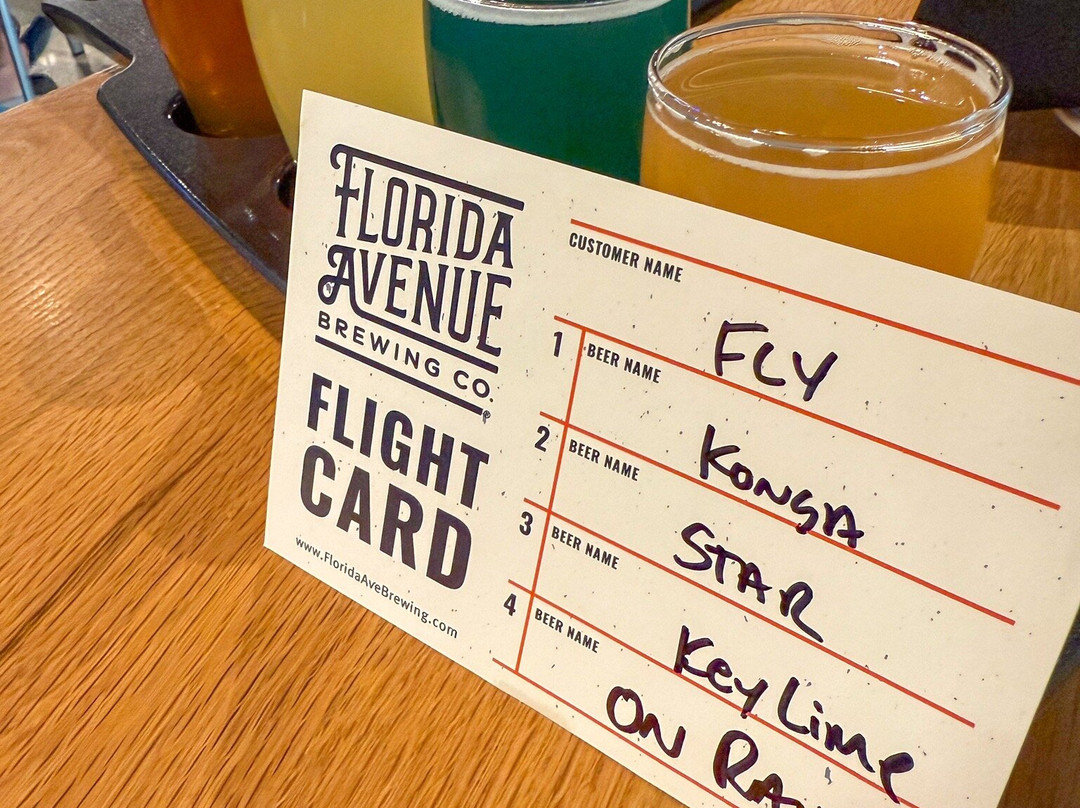 FLORIDA
AVENUE
BREWING CO.
FLIGHT
CARD
www.FloridaAveBrewing.com
CUSTOMER NAME
FLY
1 BEER NAME
KONGA
2 BEER NAME
STAR
3 BEER NAME
Key Lime
4 BEER NAME
ON